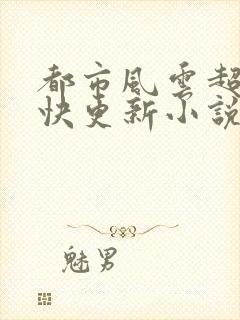 都市風雲超
快更新小說
魅男